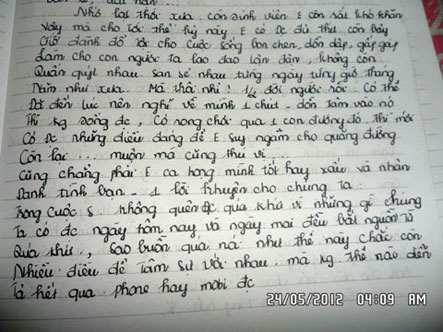 Nhớ lại thời xưa, còn sinh viên E còn rất khó khăn
Vậy mà cho tới thế kỷ này E có đc đủ thứ con Đây
Giờ đành để tốt cho cuộc sống bon chen, dồn dập, gấp gáp
Làm cho con người ta lao đao lận đận, không còn
Quấn quýt nhau san sẻ nhau từng ngày từng giờ tháng
Năm như xưa. Mà thật nhỉ! 1/2 đời người rồi. Có thể
Đã đến lúc nên nghĩ về mình 1 chút - dồn tâm vào nó
Thì kg sống đc, Có song chơi qua 1 con đường đó, thì mới
Có đc những điều đáng để E suy ngẫm cho quãng đường
Còn lại ... muộn mà cũng thú vị
Cũng chẳng phải E ca ngợi mình tốt hay xấu và nhân
Danh tình bạn - 1 lời khuyên cho chúng ta
Trong cuộc s. không quên đc quá khứ vì những gì chúng
Ta có đc ngày hôm nay và ngày mai đều bắt nguồn từ
Quá khứ, sao buồn quá nà như thế này chắc còn
Nhiều điều để Tâm sự với nhau mà kg thể nào diễn
Tả hết qua phone hay mobi đc
24/05/2012 04:09 AM